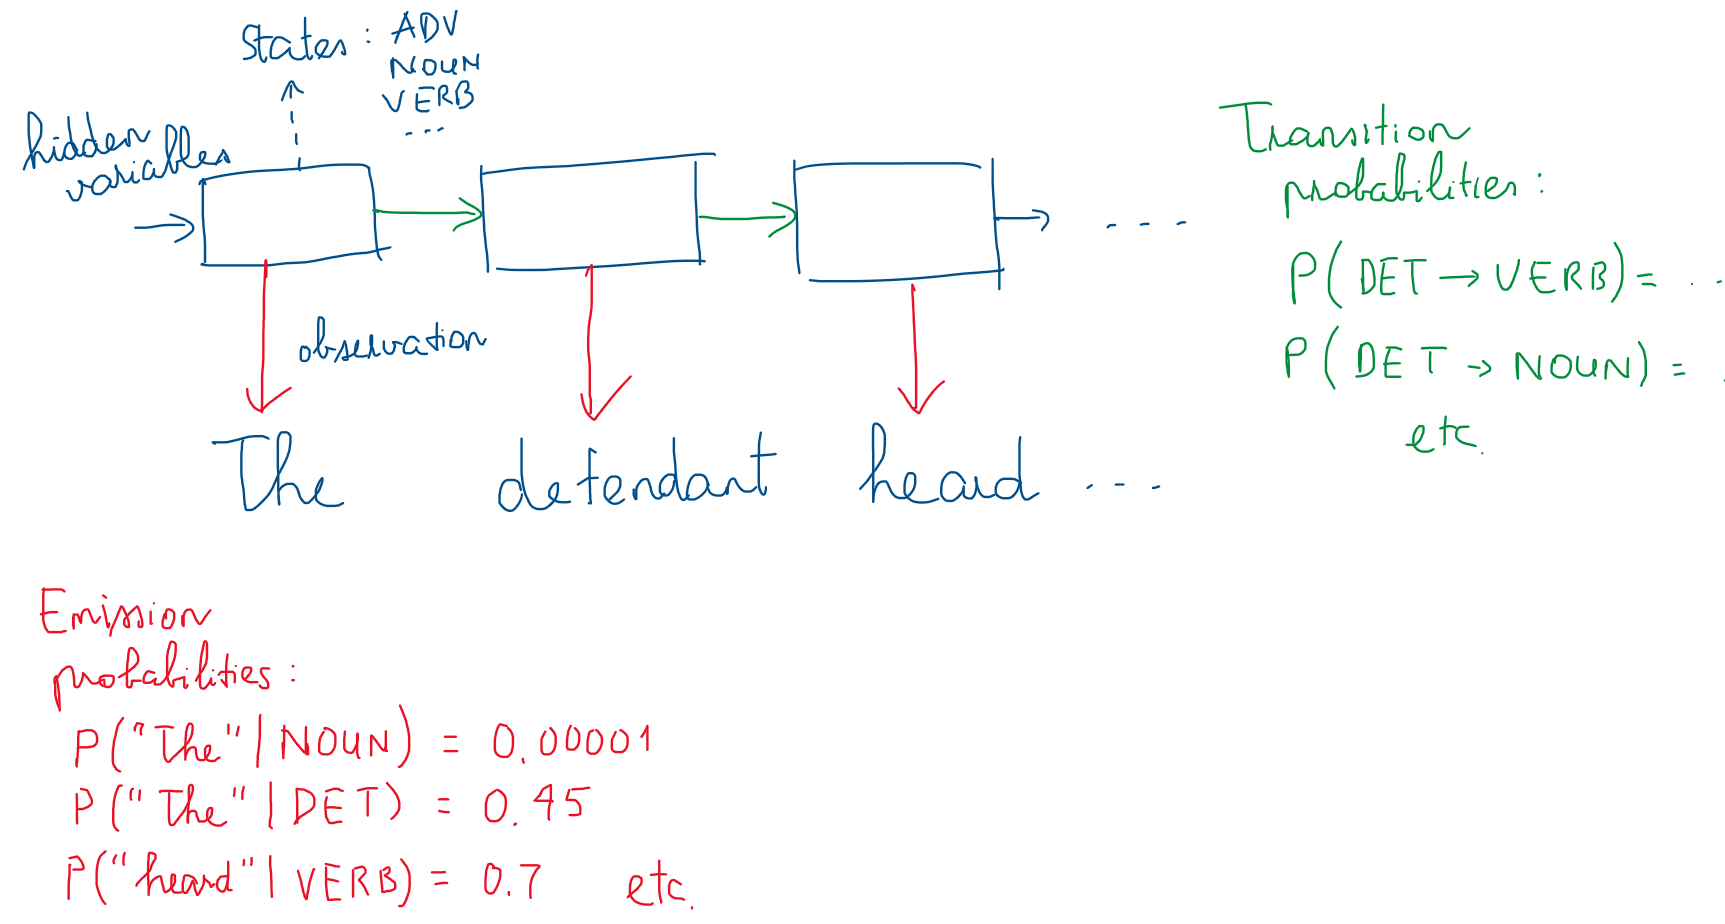 States : ADV
NOUN
VERB
...
hidden
variables
...
observation
The defendant heard ...
Transition
probabilities :
P( DET → VERB) = ..
P( DET → NOUN) = .
etc.
Emission
probabilities :
P("The" | NOUN) = 0.00001
P("The" | DET) = 0.45
P("heard" | VERB) = 0.7 etc.